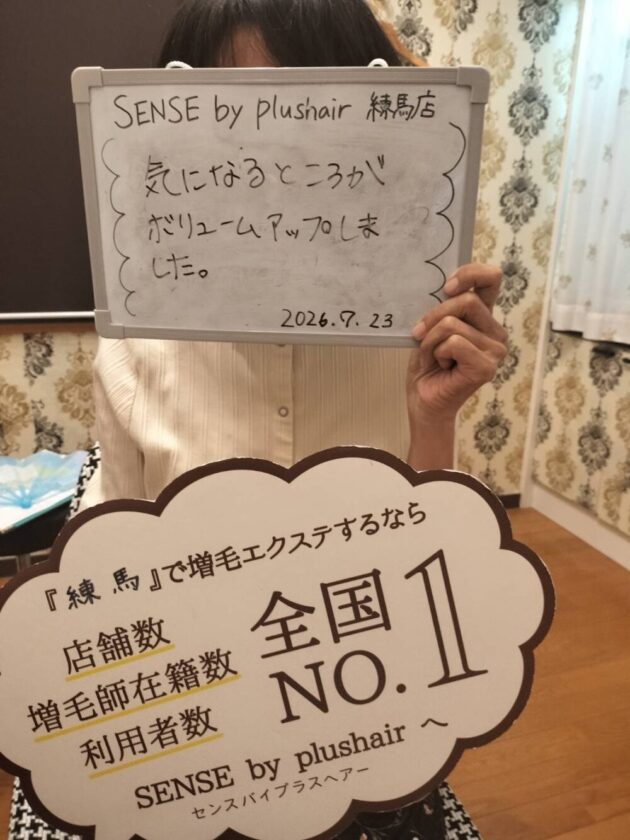 SENSE by plushair 練馬店
気になるところが
ボリュームアップしま
した。
2026.7.23
『練馬』で増毛エクステするなら
店舗数
増毛師在籍数
利用者数
全国
NO.1
SENSE by plushair へ
センスバイプラスヘアー